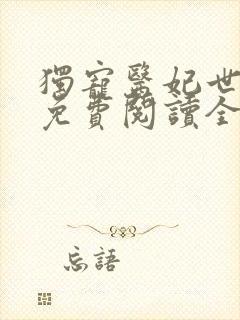 獨寵醫妃世
免費閱讀全
忘語